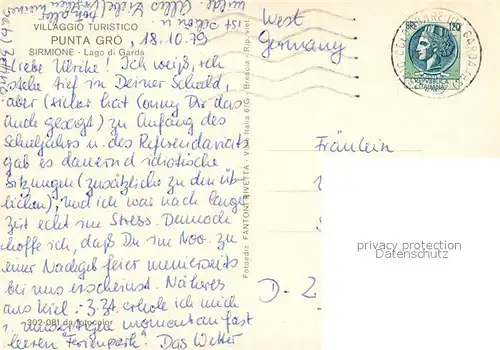 VILLAGGIO TURISTICO
PUNTA GRÒ, 18.10.79
SIRMIONE - Lago di Garda
Liebe Ulrike! Ich weiß, ich
stehe tief in Deiner Schuld,
aber (sicher hat Conny Dir das
auch gesagt) zu Anfang des
Schuljahrs u. des Referendariats
gab es dauernd idiotische
Sitzungen (zusätzliche zu den üb-
lichen), und ich war nach langer
Zeit echt im Stress. Dennoch
hoffe ich, daß Du im Nov. zu
einer Nachgeb. feier meinerseits
bei uns erscheinst. Näheres
aus Kiel. - Z.Zt. erhole ich mich
momentan fast
leeren "Ferienpark". Das Wetter
ist schön u.
302-081 da fotocolor
Fotoediz. FANTONI RIVETTA - V.le Italia 6/G - Brescia - Rip. viet.
West
Germany
120
Fräulein
D-2
privacy protection
Datenschutz